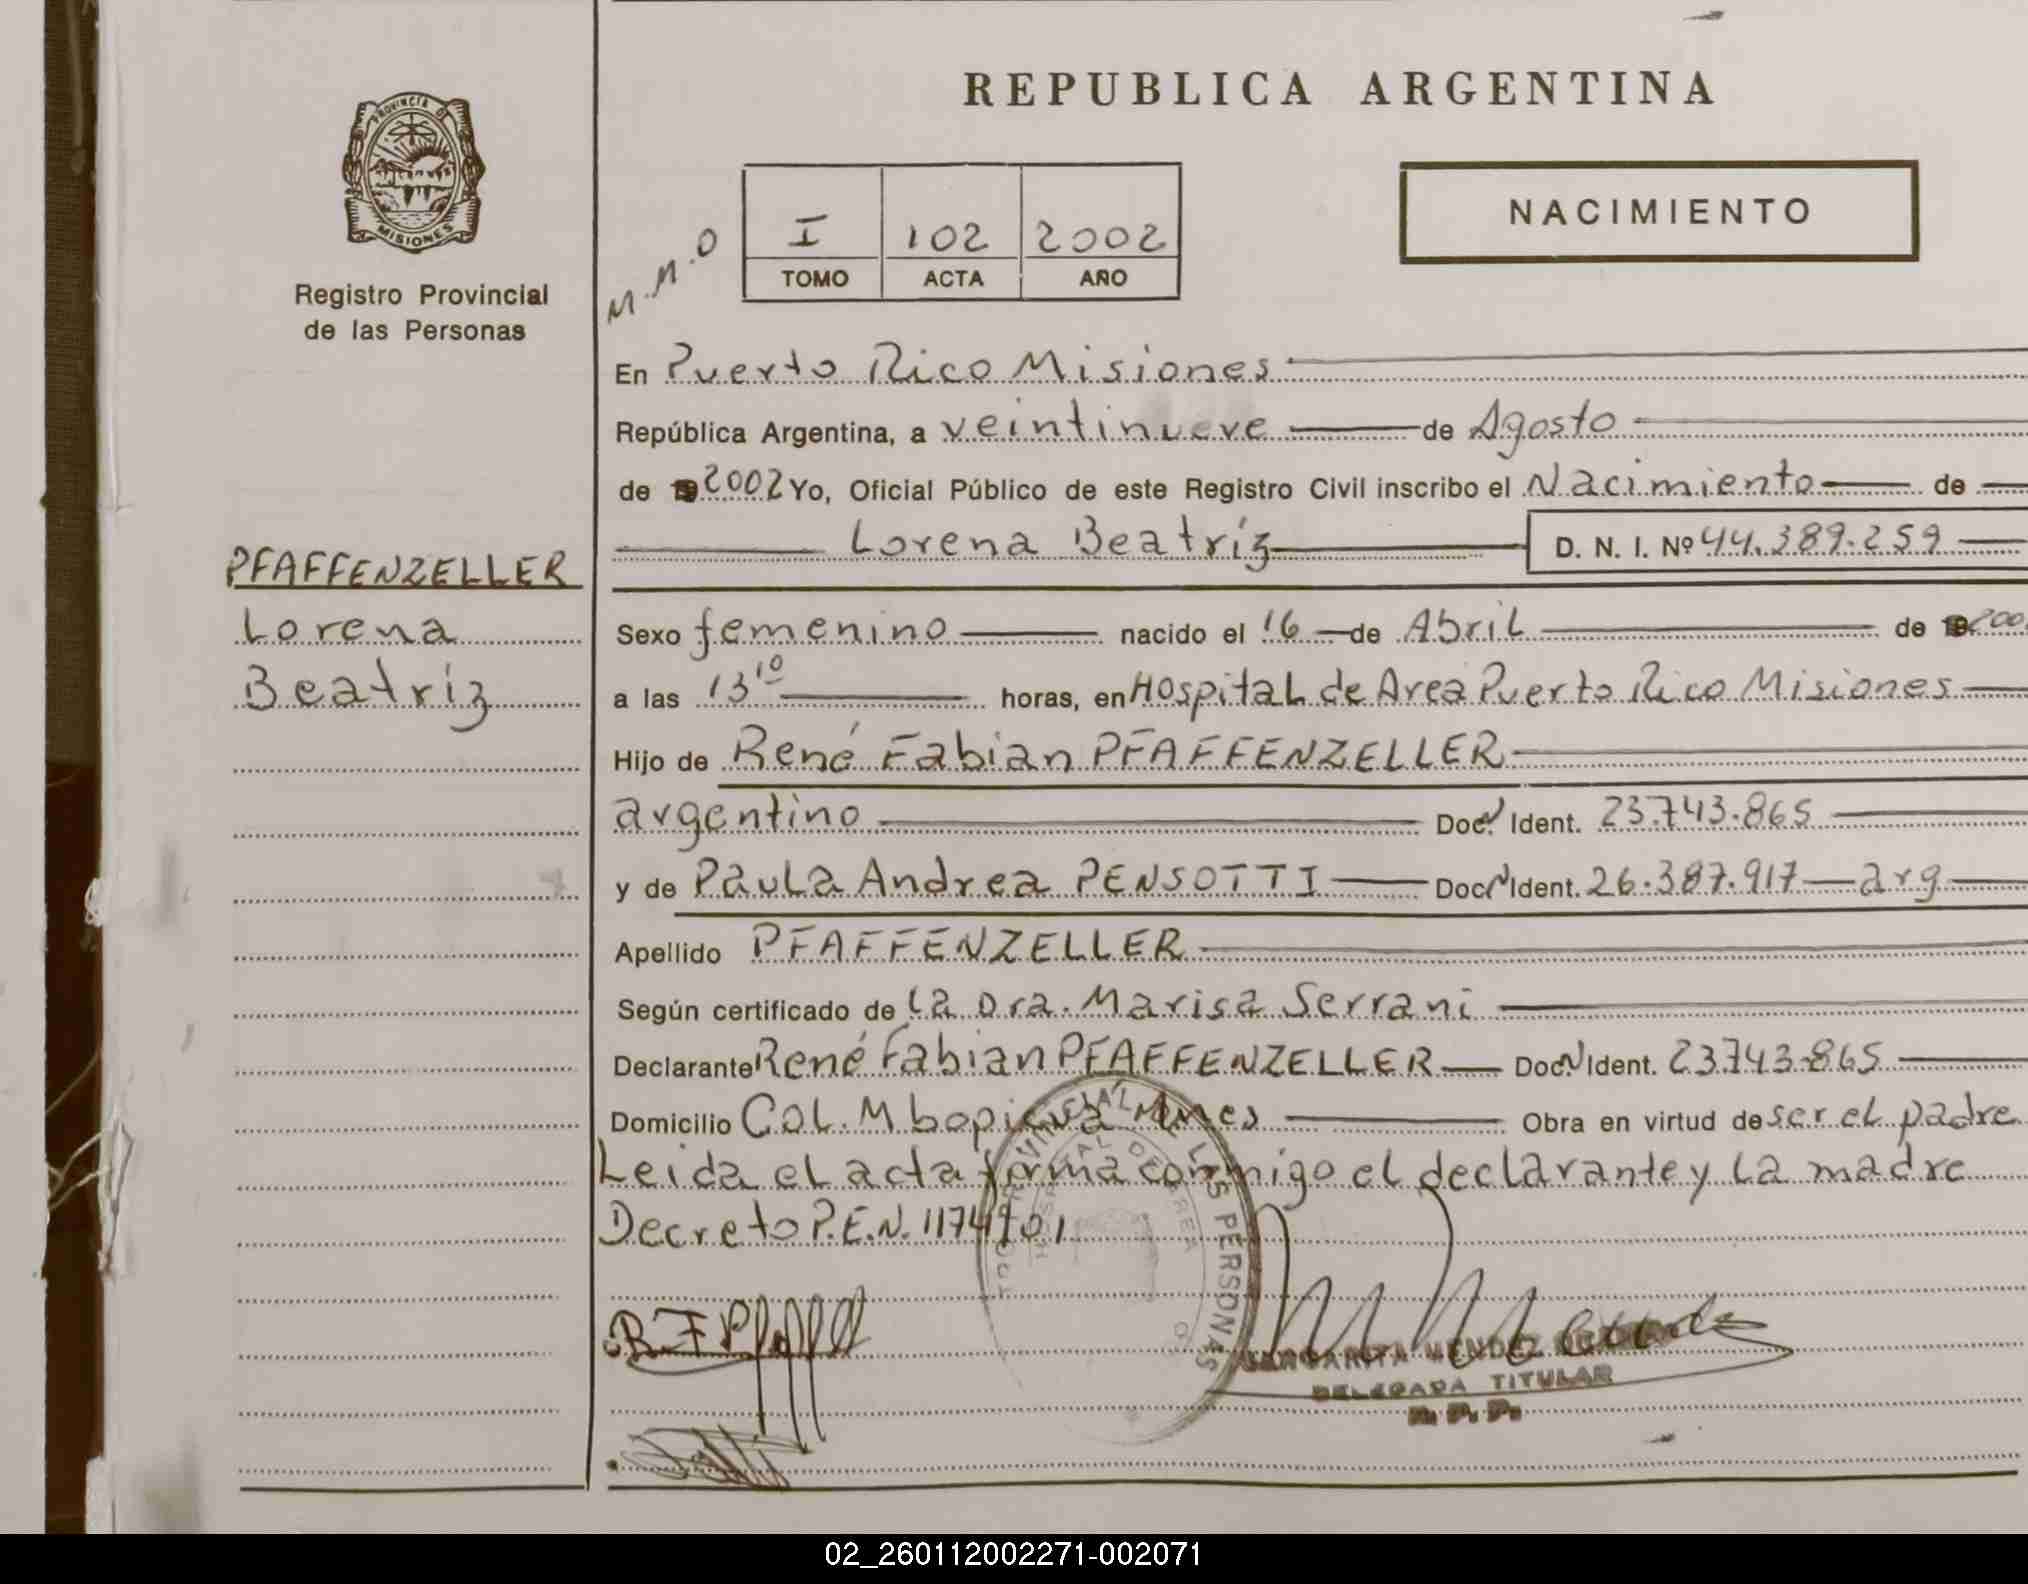 REPUBLICA ARGENTINA
PROVINCIA DE
MISIONES
Registro Provincial
de las Personas
NACIMIENTO
M.M.O
I 102 2002
TOMO ACTA AÑO
En Puerto Rico Misiones
República Argentina, a veintinueve de Agosto
de 2002 Yo, Oficial Público de este Registro Civil inscribo el Nacimiento de
Lorena Beatríz D. N. I. Nº 44.389.259
PFAFFENZELLER
Lorena
Beatríz
Sexo femenino nacido el 16 de Abril de 19 200
a las 13 10 horas, en Hospital de Area Puerto Rico Misiones
Hijo de René Fabian PFAFFENZELLER
argentino Doc. Ident. 23.743.865
y de Paula Andrea PENSOTTI Doc. Ident. 26.387.917 arg
Apellido PFAFFENZELLER
Según certificado de la Dra. Marisa Serrani
Declarante René Fabian PFAFFENZELLER Doc. Ident. 23.743.865
Domicilio Col. Mbopicua Mnes Obra en virtud de ser el padre
Leida el acta firma conmigo el declarante y la madre
Decreto P.E.N. 1174/01
DE LAS PERSONAS
HOSPITAL DE AREA
MARGARITA MENDEZ
DELEGADA TITULAR
R. P. P.
02_260112002271-002071